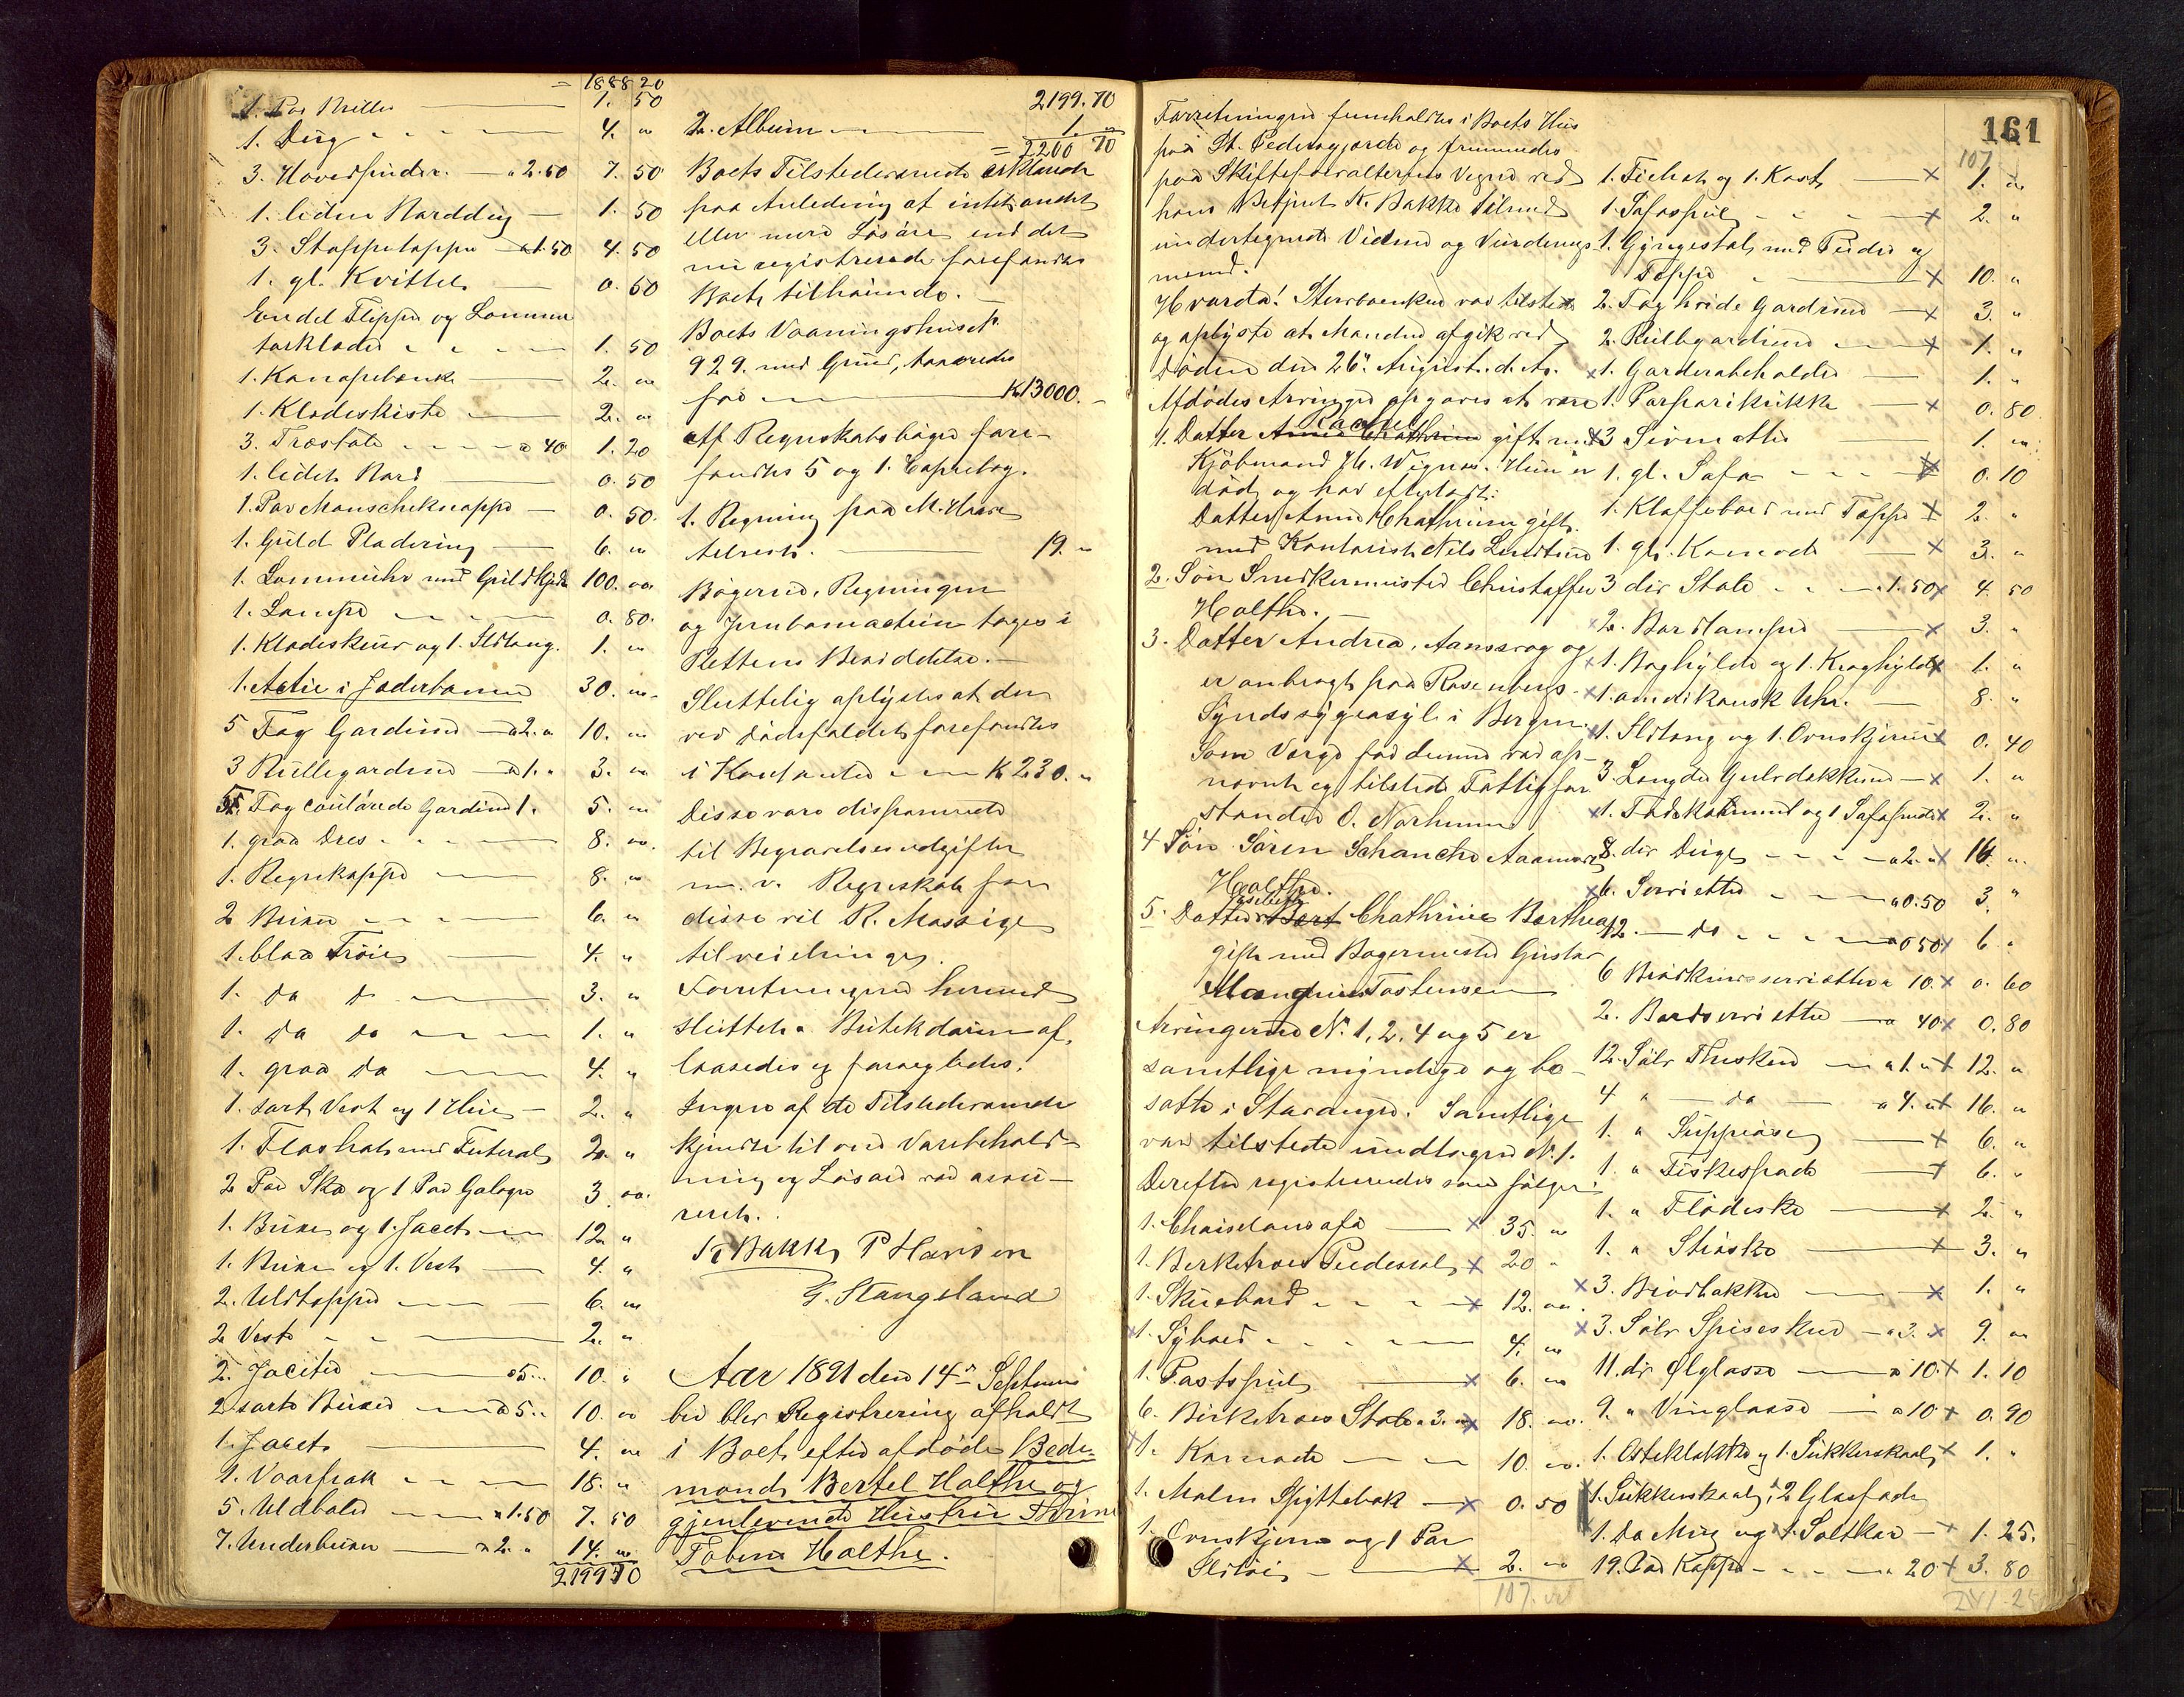 = 1888 20
1. Par Briller — 1. 50
1. Dug — 4. "
3. Hovedpuder — a 2.50 7. 50
1. liden Harddug — 1. 50
3. Stoppetæpper a 1.50 4. 50
1. gl. Kvittel — 0. 50
En del Flipper og Lomme
tørklæder — 1. 50
1. Kanapebænk — 2. "
1. Klædeskiste — 2. "
3. Træstole — a 40 1. 20
1. lidet Bord — 0. 50
1. Par Manschetknapper — 0. 50.
1. Guld Pladering — 6. "
1. Lommeuhr med Guldkjede 100. "
1. Lampe — 0. 80.
1. Klædeskuur og 1. Ildtang. 1. "
1. Actie i Jæderbanen 30. "
5 Fag Gardiner — a 2. " 10. "
3 Rullegardiner — a 1. " 3. "
5. Fag coulørede Gardiner 1. 5. "
1. graa Dres — 8. "
1. Regnkappe — 8. "
2 Buxer — 6. "
1. blaa Trøie — 4. "
1. do do — 3. "
1. do do — 1. "
1. graa do — 4. "
1. sort Vest og 1 Hue — 2. "
1. Floshat med Futeral 2. "
2 Par Sko og 1 Par Galoger 3. "
1. Buxe og 1. Jacet — 12. "
1. Buxe og 1. Vest 4. "
2. Uldtæpper — 6. "
2 Veste — 2. "
2. Jacetter — a 5. " 10. "
2 sorte Buxer — a 5. " 10. "
1. Jacet — 4. "
1. Vaarfrak — 18. "
5. Uldboler — a 1.50 7. 50
7. Underbuxer — a 2. " 14. "
2199 70
2199. 70
2. Album — 1. "
= 2200 70
Boets Tilstedeværende erklærede
paa Anledning at intet andet
eller mere Løsøre end det
nu registrerede forefandtes
Boet tilhørende. —
Boets Vaaningshus No
929. med Grund, taxeredes
for — Kr 13000. —
Af Regnskabsbøger fore-
fandtes 5 og 1. Copiebog.
1. Regning paa M. Haare
tilrest. — 19. "
Bøgerne, Regningen
og Jernbaneactien toges i
Rettens Besiddelse. —
Sluttelig oplystes at der
ved Dødsfaldet forefandtes
i Kontanter — Kr 230. "
Disse vare disponerede
til Begravelsesudgifter
m. v. Regnskab for
disse vil R. Massige
tilveiebringe.
Forretningen hermed
sluttet. Butikdøren af-
laasedes og forsegledes.
Ingen af de Tilstedeværende
kjendte til om Varebehold-
ning og Løsøre var assu-
reret.
K Bakke P Hansen
G. Stangeland
Aar 1891 den 14de Septem-
ber blev Registrering afholdt
i Boet efter afdøde Bede-
mand Bertel Holthe og
gjenlevende Hustru Thrine
Tobine Holthe.
Forretningen fremholdtes i Boets Hus
paa St. Pedersgjerde og fremmedes
paa Skifteforvalterens Vegne ved
hans Betjent K. Bakke tilligemed
undertegnede Vidner og Vurderings-
mænd.
Hvorda! Sterboenken var tilstede
og oplyste at Manden afgik ved
Døden den 26. August d. A.
Afdødes Arvinger opgaves at være
1. Datter Rachel gift med
Kjøbmand H. Wignæs. Hun er
død og har efterladt:
Datter Anne Chathrine gift
med Kontorist Nils Lundtun
2. Søn Snedkermester Christoffer
Holthe. —
3. Datter Andrea, Aanssvag og
er anbragt paa Rosenbergs
Syndssygeasyl i Bergen.
Som Verge for denne var op-
nævnt og tilstede Fattigfor-
stander O. Norheim
4 Søn Søren Schanche Aanensen
Holthe.
5. Datter Chathrine Barthea
gift med Bagermester Gustav
Magnus Torstensen
Arvingerne No. 1, 2, 4 og 5 er
samtlige myndige og bo-
satte i Stavanger. Samtlige
var tilstede undtagen No. 1.
Derefter registreredes som følger:
1. Chaiselonsofa — x 35. "
1. Birketræes Piedestal x 20 "
1. Skuebord — x 12. "
x1. Sybord — 4. "
1. Postspeil — x 6. "
6. Birketræes Stole a 3. " x 18. "
x1. Komode — 10. "
1. Malm Spyttebak — x 0. 50
1. Ovnskjerm og 1 Par
Ildtøi — x 2. "
107. "
161
107
1. Tiehat og 1. Kost — x 1. "
1. Sofaspeil — x 2. "
1. Gyngestol med Puder og
Tæppe — x 10. "
2. Fag hvide Gardiner — x 3. "
2. Rullegardiner — x 1. "
x1. Garderobeholder — 1. "
1. Parparikrukke — x 0. 80.
x3 Sirmatter — 1. "
1. gl. Sofa — x 0. 10
1. Klaffebord med Tæppe x 2. "
1. gl. Komode — x 3. "
3 dir Stole — a 1. 50 x 4. 50
x2. Bordlamper — x 3. "
x1. Boghylde og 1. Kroghylde x 1. "
x1. amerikansk Uhr. — 8. "
x1. Ildtang og 1. Ovnskjerm x 0. 40
3. Længder Gulvdækken — x 1. "
x1. Fodskammel og 1 Sofapude x 2. "
8. dir Duge — a 2. " x 16. "
x6. Servietter — a 0.50 3. "
12. — do — a 0 50 x 6. "
6 Brødkurvservietter a 10. x 0. 60
2. Bordservietter — a 40 x 0. 80
12. Sølv Theskeer — a 1. " x 12. "
4 " — do — a 4. " x 16. "
1. " Suppeøse — x 6. "
1. " Fiskespade — x 6. "
1. " Flødeske — x 2. "
1. " Strøske — x 3. "
x3. Brødbakker — x 1. "
x3. Sølv Spiseskeer — a 3. x 9. "
11. dir Ølglasse — a 10. x 1. 10
9. " Vinglasse — a 10 x 0. 90
1. Osteklokke og 1. Sukkerskaal x 1. "
x1. Sukkerskaal, 2 Glasfade
x1. Do Mug og 1. Saltkar — x 1. 25.
19. Par Kopper — a 20 x 3. 80